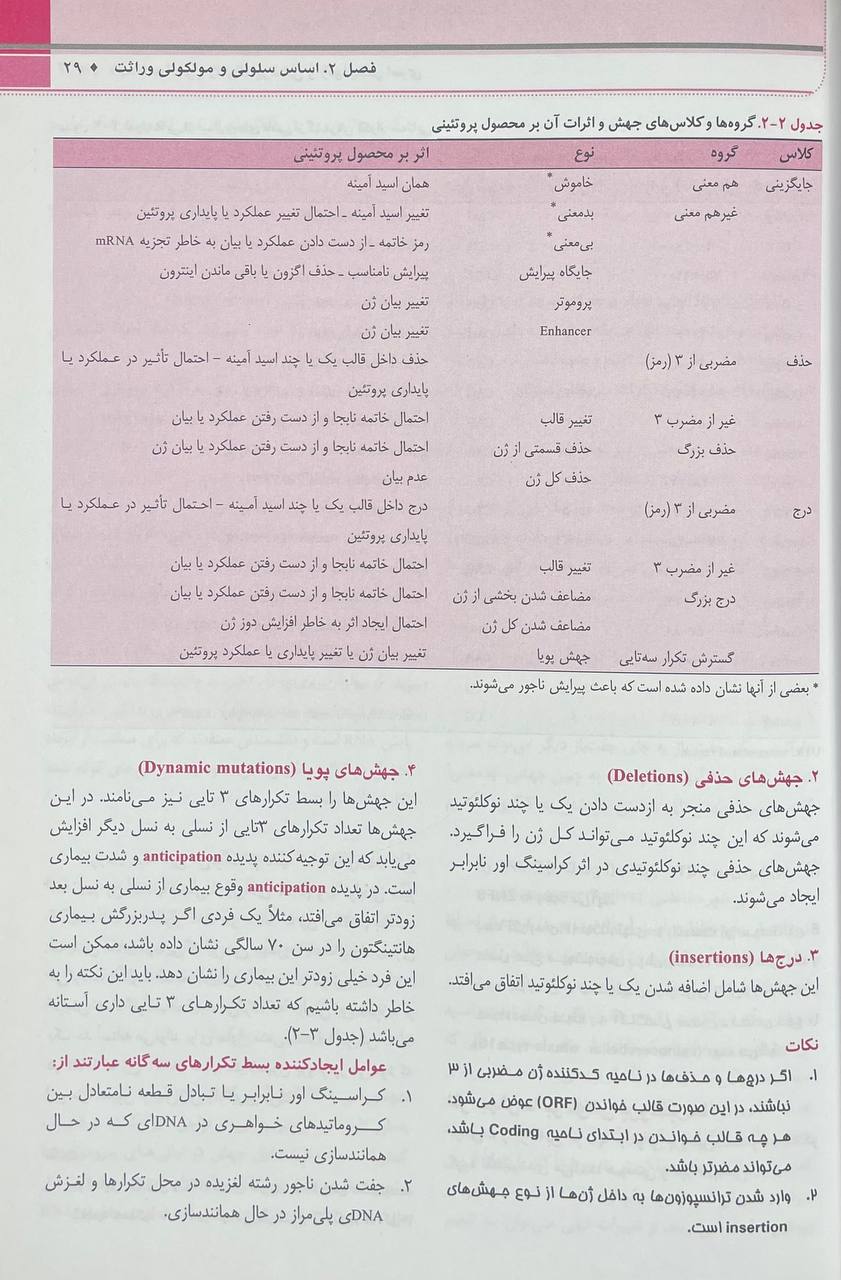 فصل ۲. اساس سلولی و مولکولی وراثت ♦ ۲۹
جدول ۲-۲. گروه‌ها و کلاس‌های جهش و اثرات آن بر محصول پروتئینی
کلاس گروه نوع اثر بر محصول پروتئینی
جایگزینی هم معنی خاموش* همان اسید آمینه
غیرهم معنی بدمعنی* تغییر اسید آمینه ـ احتمال تغییر عملکرد یا پایداری پروتئین
بی‌معنی* رمز خاتمه ـ از دست دادن عملکرد یا بیان به خاطر تجزیه mRNA
جایگاه پیرایش پیرایش نامناسب ـ حذف اگزون یا باقی ماندن اینترون
پروموتر تغییر بیان ژن
Enhancer تغییر بیان ژن
حذف مضربی از ۳ (رمز) حذف داخل قالب یک یا چند اسید آمینه – احتمال تأثیر در عملکرد یا
پایداری پروتئین
غیر از مضرب ۳ تغییر قالب احتمال خاتمه نابجا و از دست رفتن عملکرد یا بیان
حذف بزرگ حذف قسمتی از ژن احتمال خاتمه نابجا و از دست رفتن عملکرد یا بیان ژن
حذف کل ژن عدم بیان
درج مضربی از ۳ (رمز) درج داخل قالب یک یا چند اسید آمینه – احتمال تأثیر در عملکرد یا
پایداری پروتئین
غیر از مضرب ۳ تغییر قالب احتمال خاتمه نابجا و از دست رفتن عملکرد یا بیان
درج بزرگ مضاعف شدن بخشی از ژن احتمال خاتمه نابجا و از دست رفتن عملکرد یا بیان
مضاعف شدن کل ژن احتمال ایجاد اثر به خاطر افزایش دوز ژن
گسترش تکرار سه‌تایی جهش پویا تغییر بیان ژن یا تغییر پایداری یا عملکرد پروتئین
* بعضی از آنها نشان داده شده است که باعث پیرایش ناجور می‌شوند.
۲. جهش‌های حذفی (Deletions)
جهش‌های حذفی منجر به ازدست دادن یک یا چند نوکلئوتید
می‌شوند که این چند نوکلئوتید می‌تواند کل ژن را فراگیرد.
جهش‌های حذفی چند نوکلئوتیدی در اثر کراسینگ اور نابرابر
ایجاد می‌شوند.
۳. درج‌ها (insertions)
این جهش‌ها شامل اضافه شدن یک یا چند نوکلئوتید اتفاق می‌افتد.
نکات
۱. اگر درج‌ها و حذف‌ها در ناحیه کدکننده ژن مضربی از ۳
نباشند، در این صورت قالب خواندن (ORF) عوض می‌شود.
هر چه قالب خواندن در ابتدای ناحیه Coding باشد،
می‌تواند مضرتر باشد.
۲. وارد شدن ترانسپوزون‌ها به داخل ژن‌ها از نوع جهش‌های
insertion است.
۴. جهش‌های پویا (Dynamic mutations)
این جهش‌ها را بسط تکرارهای ۳ تایی نیز می‌نامند. در این
جهش‌ها تعداد تکرارهای ۳تایی از نسلی به نسل دیگر افزایش
می‌یابد که این توجیه‌کننده پدیده anticipation و شدت بیماری
است. در پدیده anticipation وقوع بیماری از نسلی به نسل بعد
زودتر اتفاق می‌افتد، مثلاً یک فردی اگر پدربزرگش بیماری
هانتینگتون را در سن ۷۰ سالگی نشان داده باشد، ممکن است
این فرد خیلی زودتر این بیماری را نشان دهد. باید این نکته را به
خاطر داشته باشیم که تعداد تکرارهای ۳ تایی داری آستانه
می‌باشد (جدول ۳-۲).
عوامل ایجادکننده بسط تکرارهای سه گانه عبارتند از:
۱. کراسینگ اور نابرابر یا تبادل قطعه نامتعادل بین
کروماتیدهای خواهری در DNAای که در حال
همانندسازی نیست.
۲. جفت شدن ناجور رشته لغزیده در محل تکرارها و لغزش
DNAی پلی‌مراز در حال همانندسازی.